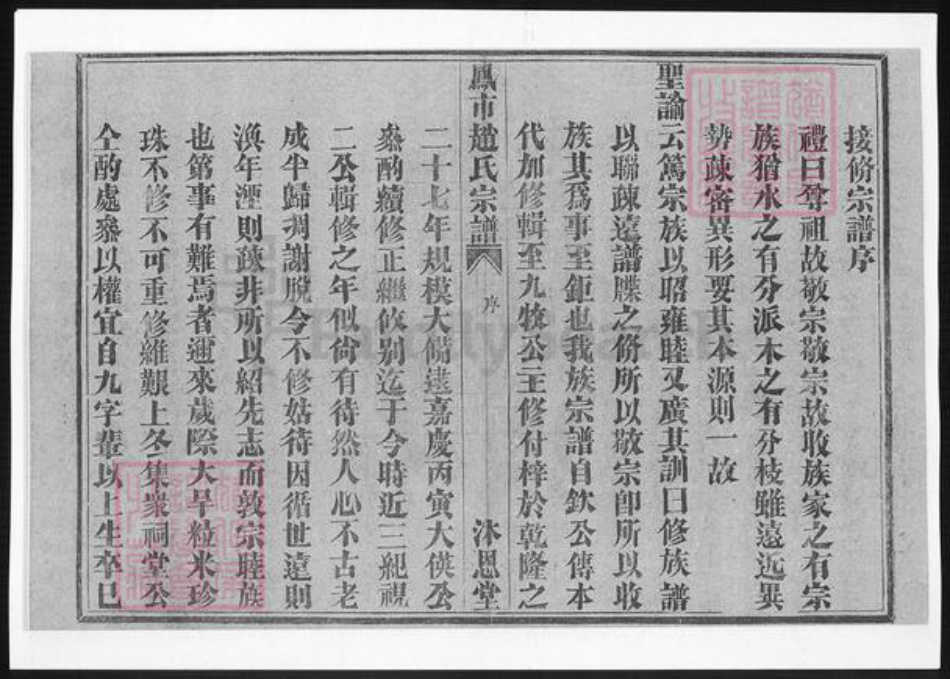 接脩宗譜序
禮曰尊祖故敬宗敬宗故收族家之有宗
族猶水之有分派木之有分枝雖遠近異
勢疎密異形要其本源則一故
聖諭云篤宗族以昭雍睦又廣其訓曰修族譜
以聯疎遠譜牒之脩所以敬宗卽所以收
族其爲事至鉅也我族宗譜自欽公傳本
代加修輯至九牧公主修付梓於乾隆之
鳳市趙氏宗譜 序 沐恩堂
二十七年規模大備逮嘉慶丙寅大僙公
叅酌續修正繼攸别迄于今時近三紀視
二公輯修之年似尙有待然人心不古老
成半歸凋謝脫今不修姑待因循世遠則
渙年湮則踈非所以紹先志而敦宗睦族
也第事有難焉者邇來歲際大旱粒米珍
珠不修不可重修維艱上冬集衆祠堂公
仝酌處叅以權宜自九字輩以上生卒已